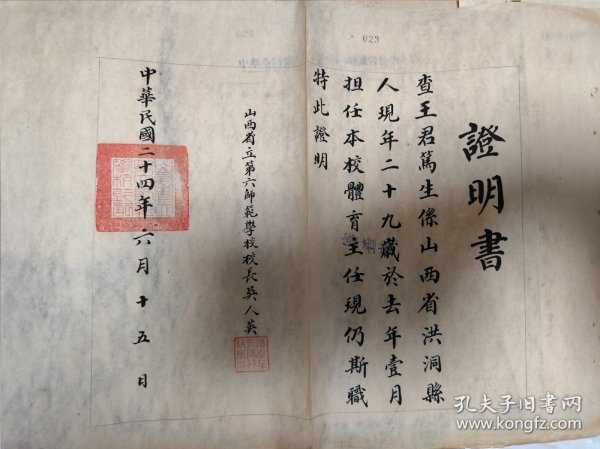 023
證明書
查王君篤生係山西省洪洞縣
人現年二十九歲於去年壹月
担任本校體育主任現仍斯職
特此證明
山西省立第六師範學校校長吳人英
中華民國二十四年六月十五日
孔夫子旧书网
www.kongfz.com